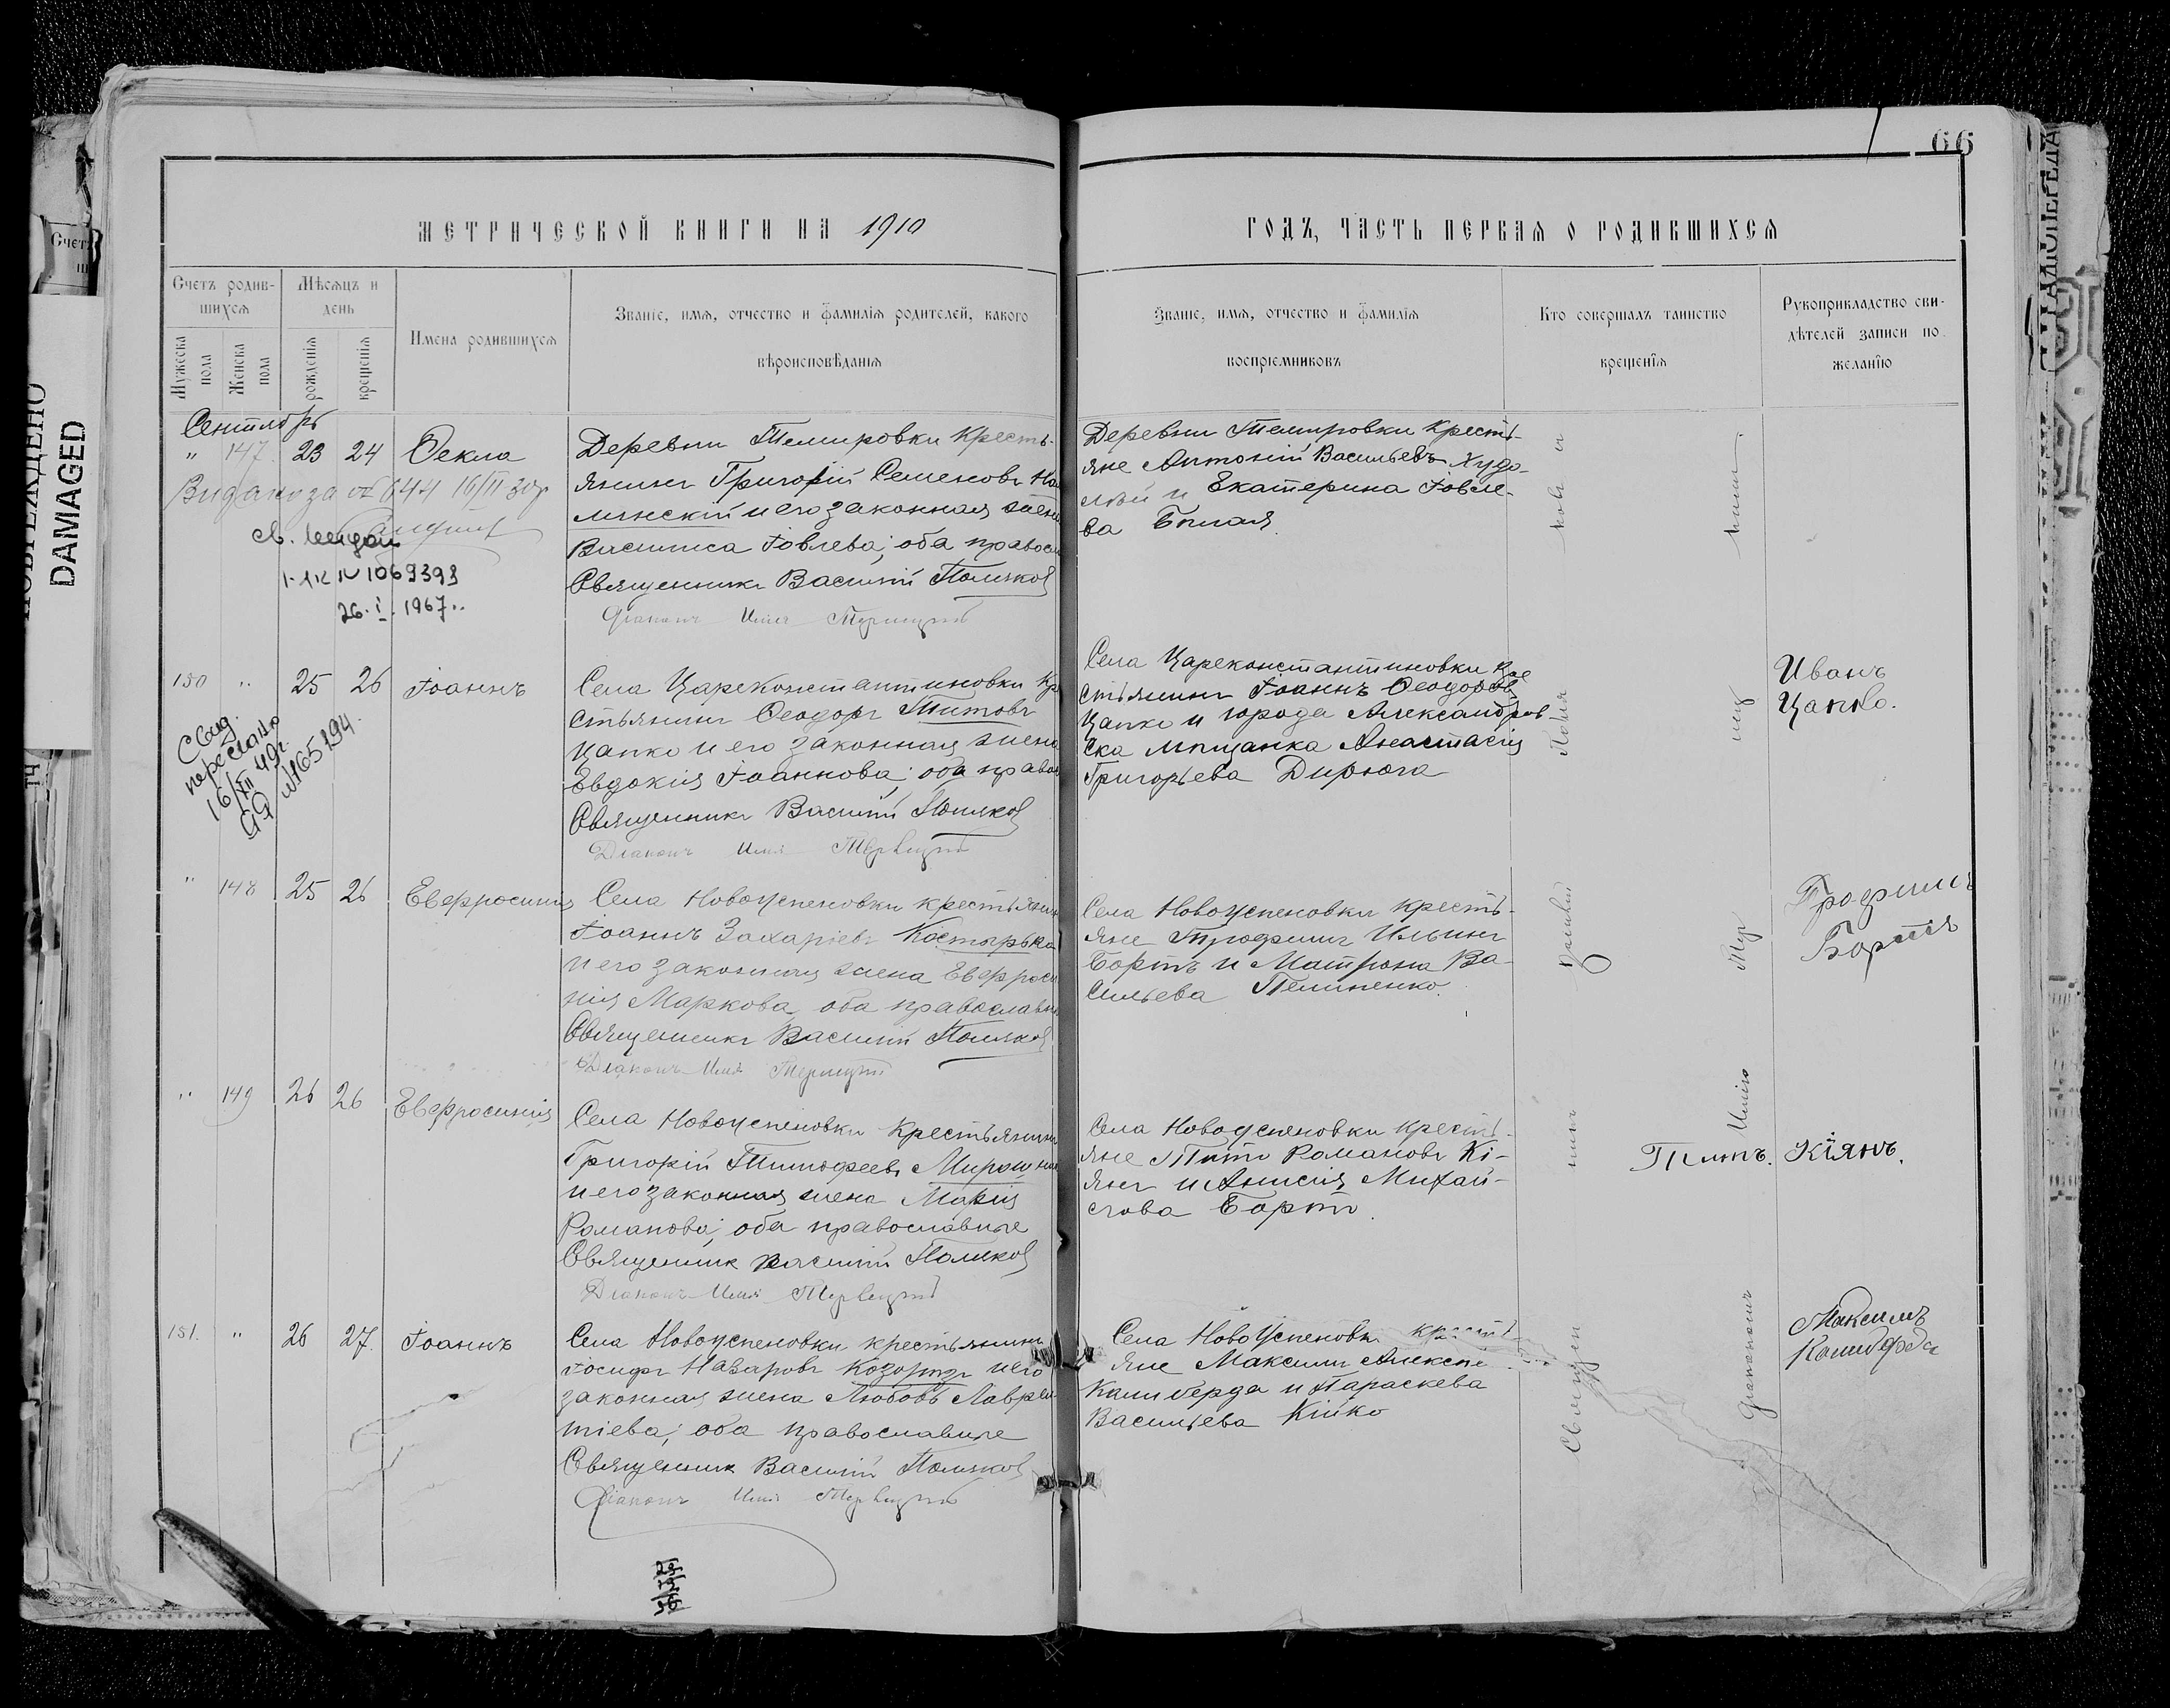 66
МЕТРИЧЕСКОЙ КНИГИ НА 1910
ГОДЪ, ЧАСТЬ ПЕРВАЯ О РОДИВШИХСЯ
Счетъ родив-
шихся
Мужеска
пола
Женска
пола
Мѣсяцъ и
день
рожденія
крещенія
Имена родившихся
Званіе, имя, отчество и фамилія родителей, какого
вѣроисповѣданія
Званіе, имя, отчество и фамилія
воспріемниковъ
Кто совершалъ таинство
крещенія
Рукоприкладство сви-
дѣтелей записи по
желанію
Сентябрь
" 147 23 24 Ѳекла
Деревни Темировки кресть-
янинъ Григорій Семеновъ
и его законная жена
Василиса Іовлева; оба
Священникъ Василій Поляков
Діаконъ Илія
Деревни Темировки кресть-
яне Антоній Васильевъ Худо-
лѣй и Екатерина Іовле-
ва Бѣлая
644 16/II 30
1069393
26.I.1967
150 " 25 26 Іоаннъ
Села Цареконстантиновки кре
стьянинъ Ѳеодоръ Титовъ
Цапко и его законная жена
Евдокія Іоаннова; оба
Священникъ Василій Поляков
Діаконъ Илія
Села Цареконстантиновки кре
стьянинъ Іоаннъ Ѳеодоров
Цапко и города Александров-
ска мѣщанка Анастасія
Григорьева Дирюга
Иванъ
Цапко.
Свид.
переслано
16/XII 49г
№65194
" 148 25 26 Евфросинія
Села Новоуспеновки крестьянинъ
Іоаннъ Захаріевъ Костырька
и его законная жена Евфроси
нія Маркова, оба православн
Священникъ Василій Поляков
Діаконъ Илія
Села Новоуспеновки кресть-
яне Трофимъ Ильинъ
Бортъ и Матрона Ва-
сильева Пелипенко.
Трофимъ
Бортъ
" 149 26 26 Евфросинія
Села Новоуспеновки крестьянинъ
Григорій Тимофеевъ
и его законная жена Марія
Романова; оба православные
Священник Василій Поляков
Діаконъ Илія
Села Новоуспеновки кресть-
яне Титъ Романовъ Кі-
янъ и Анисія Михай-
лова Бортъ.
Титъ. Кіянъ.
151. " 26 27. Іоаннъ
Села Новоуспеновки крестьянинъ
Іосифъ Назаровъ Козоризъ и его
законная жена Любовь Лаврен
тіева; оба православные
Священник Василій Поляков
Діаконъ Илія
Села Новоуспеновки кресть-
яне Максимъ Алексіе
Калиберда и Параскева
Васильева Кійко
Максимъ
Калиберда
Священникъ Василій Поляковъ и
Діаконъ Илія
DAMAGED